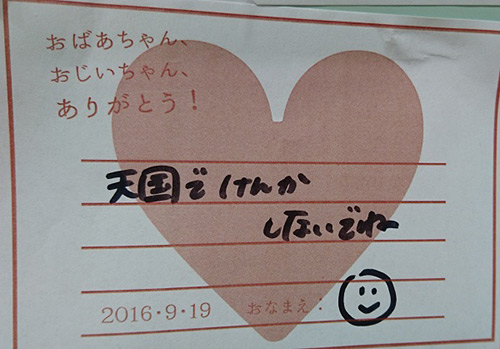 おばあちゃん、
おじいちゃん、
ありがとう！
天国でけんか
しないでねー
2016・9・19 おなまえ：